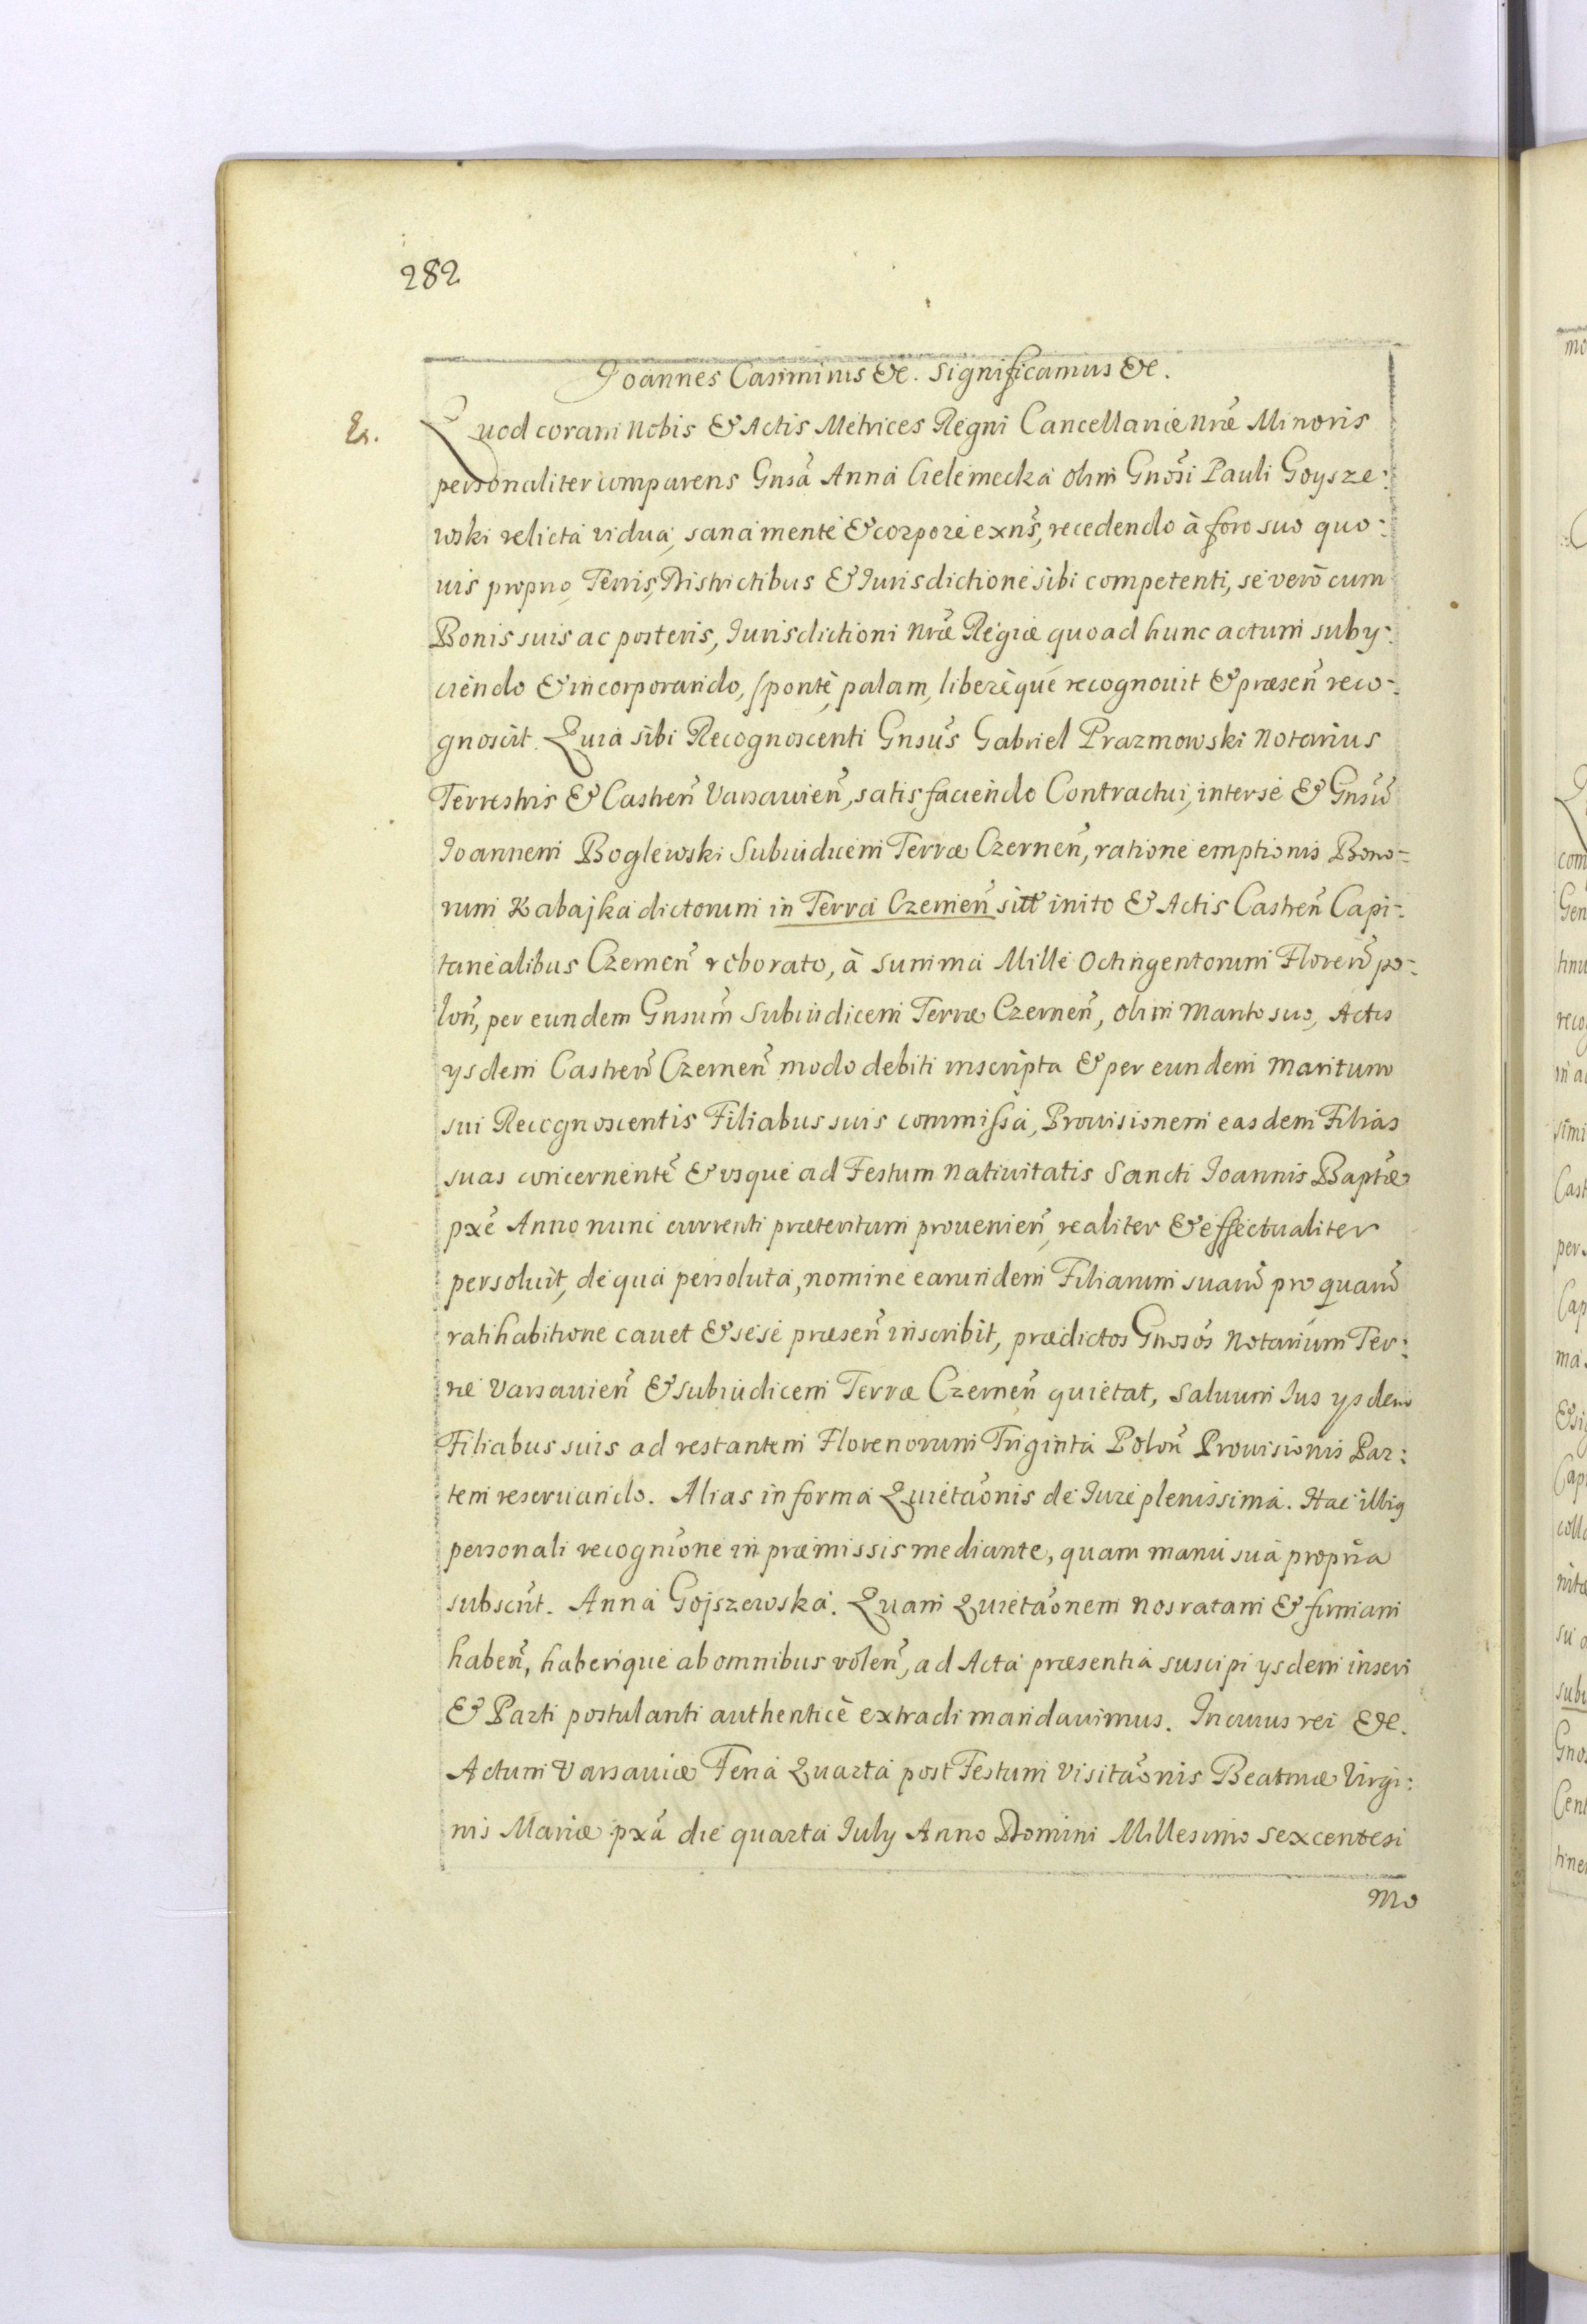 282
Joannes Casimirus &c. Significamus &c.
Ex. Quod coram Nobis & Actis Metrices Regni Cancellariæ Nr̃æ Minoris
personaliter comparens Gnsã Anna Cielemecka olim Gnõsi Pauli Goysze:
wski relicta vidua, sana mente & corpore exñs, recedendo à foro suo quo:
uis proprio, Terris, Districtibus & Iurisdictione sibi competenti, se verò cum
Bonis suis ac posteris, Iurisdictioni Nr̃æ Regiæ quoad hunc actum suby:
ciendo & incorporando, sponte, palam, libereque recognouit & præseñ reco:
gnoscit. Quia sibi Recognoscenti Gnsũs Gabriel Prazmowski Notarius
Terrestris & Castreñ Varsauieñ, satisfaciendo Contractui, inter se & Gnsũ
Joannem Boglewski Subiudicem Terræ Czerneñ, ratione emptionis Bono=
rum Kabajka dictorum in Terra Czerneñ sitt inito & Actis Castreñ Capi=
tanealibus Czerneñ roborato, à summa Mille Octingentorum Floreñ po=
loñ, per eundem Gnsum̃ Subiudicem Terræ Czerneñ, olim Marito suo, Actis
ysdem Castreñ Czerneñ modo debiti inscripta & per eundem Maritum
sui Recognoscentis Filiabus suis commissa, Prouisionem easdem Filias
suas concernentẽ & vsque ad Festum Natiuitatis Sancti Joannis Baptæ̃
pxẽ Anno nunc currenti præteritum prouenieñ, realiter & effectualiter
persoluit, de qua persoluta, nomine earundem Filiarum suarũ pro quarũ
ratihabitione cauet & sese præseñ inscribit, prædictos Gnosõs Notarium Ter:
ræ Varsauieñ & Subiudicem Terræ Czerneñ quietat, saluum Ius ysdem
Filiabus suis ad restantem Florenorum Triginta Poloñ Prouisionis Par:
tem reseruando. Alias in forma Quietãonis de Iure plenissima. Hac illiq
personali recognĩone in præmissis mediante, quam manu sua propria
subscrĩt. Anna Gojszewska. Quam Quietãonem nos ratam & firmam
habeñ, haberique ab omnibus voleñ, ad Acta præsentia suscipi ysdem inseri
& Parti postulanti authenticè extradi mandauimus. In cuius rei &c.
Actum Varsauiæ Feria Quarta post Festum Visitãonis Beatmæ Virgi:
nis Mariæ pxã die quarta July Anno Domini Millesimo sexcentesi
mo